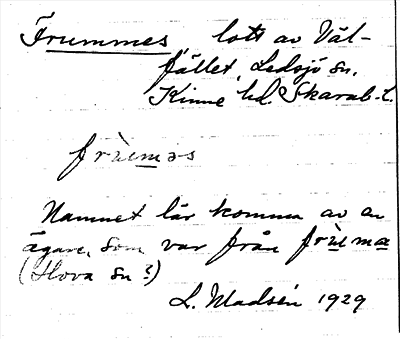 Frummes, lott av Väl-
fället, Ledsjö sn,
Kinne hd. Skarab. l.
frùm̲əs
Namnet lär komma av en
ägare, som var från frùm̲a
(Hova sn?)
L. Madsén 1929